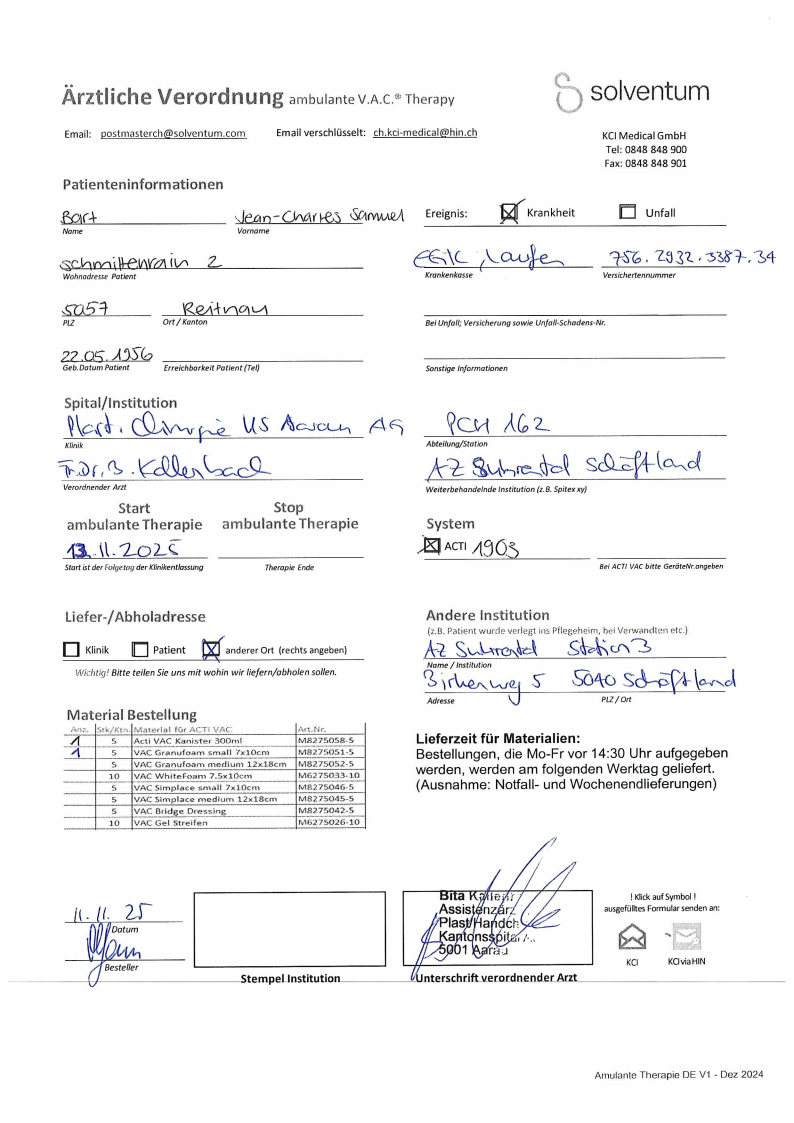 Ärztliche Verordnung ambulante V.A.C.® Therapy
solventum
Email: postmasterch@solventum.com Email verschlüsselt: ch.kci-medical@hin.ch
KCI Medical GmbH
Tel: 0848 848 900
Fax: 0848 848 901
Patienteninformationen
Bart Jean-Charles Samuel
Name Vorname
Ereignis: Krankheit Unfall
Schmittenrain 2
Wohnadresse Patient
EGK, Laufen 756.2932.3387.34
Krankenkasse Versichertennummer
5057 Reitnau
PLZ Ort / Kanton
Bei Unfall; Versicherung sowie Unfall-Schadens-Nr.
22.05.1956
Geb.Datum Patient Erreichbarkeit Patient (Tel)
Sonstige Informationen
Spital/Institution
Plast. Chirurgie Aarau AG
Klinik
PCH 162
Abteilung/Station
Dr. B. Kallenbach
Verordnender Arzt
AZ Suhrental Schöftland
Weiterbehandelnde Institution (z.B. Spitex xy)
Start ambulante Therapie
Stop ambulante Therapie
System
13.11.2025
Start ist der Folgetag der Klinikentlassung Therapie Ende
ACTI 1903
Bei ACTI VAC bitte GeräteNr.angeben
Liefer-/Abholadresse
Klinik Patient anderer Ort (rechts angeben)
Wichtig! Bitte teilen Sie uns mit wohin wir liefern/abholen sollen.
Andere Institution
(z.B. Patient wurde verlegt ins Pflegeheim, bei Verwandten etc.)
AZ Suhrental Station 3
Name / Institution
Birkenweg 5 5040 Schöftland
Adresse PLZ / Ort
Material Bestellung
Anz. Stk/Ktn. Material für ACTI VAC Art.Nr.
1 5 Acti VAC Kanister 300ml M8275058-5
1 5 VAC Granufoam small 7x10cm M8275051-5
5 VAC Granufoam medium 12x18cm M8275052-5
10 VAC WhiteFoam 7.5x10cm M6275033-10
5 VAC Simplace small 7x10cm M8275046-5
5 VAC Simplace medium 12x18cm M8275045-5
5 VAC Bridge Dressing M8275042-5
10 VAC Gel Streifen M6275026-10
Lieferzeit für Materialien:
Bestellungen, die Mo-Fr vor 14:30 Uhr aufgegeben
werden, werden am folgenden Werktag geliefert.
(Ausnahme: Notfall- und Wochenendlieferungen)
11.11.25
Datum
Besteller
Stempel Institution
Bita
Assistenzärz
Plast/Handch
Kantonsspital
5001 Aarau
Unterschrift verordnender Arzt
! Klick auf Symbol !
ausgefülltes Formular senden an:
KCI KCI via HIN
Amulante Therapie DE V1 - Dez 2024